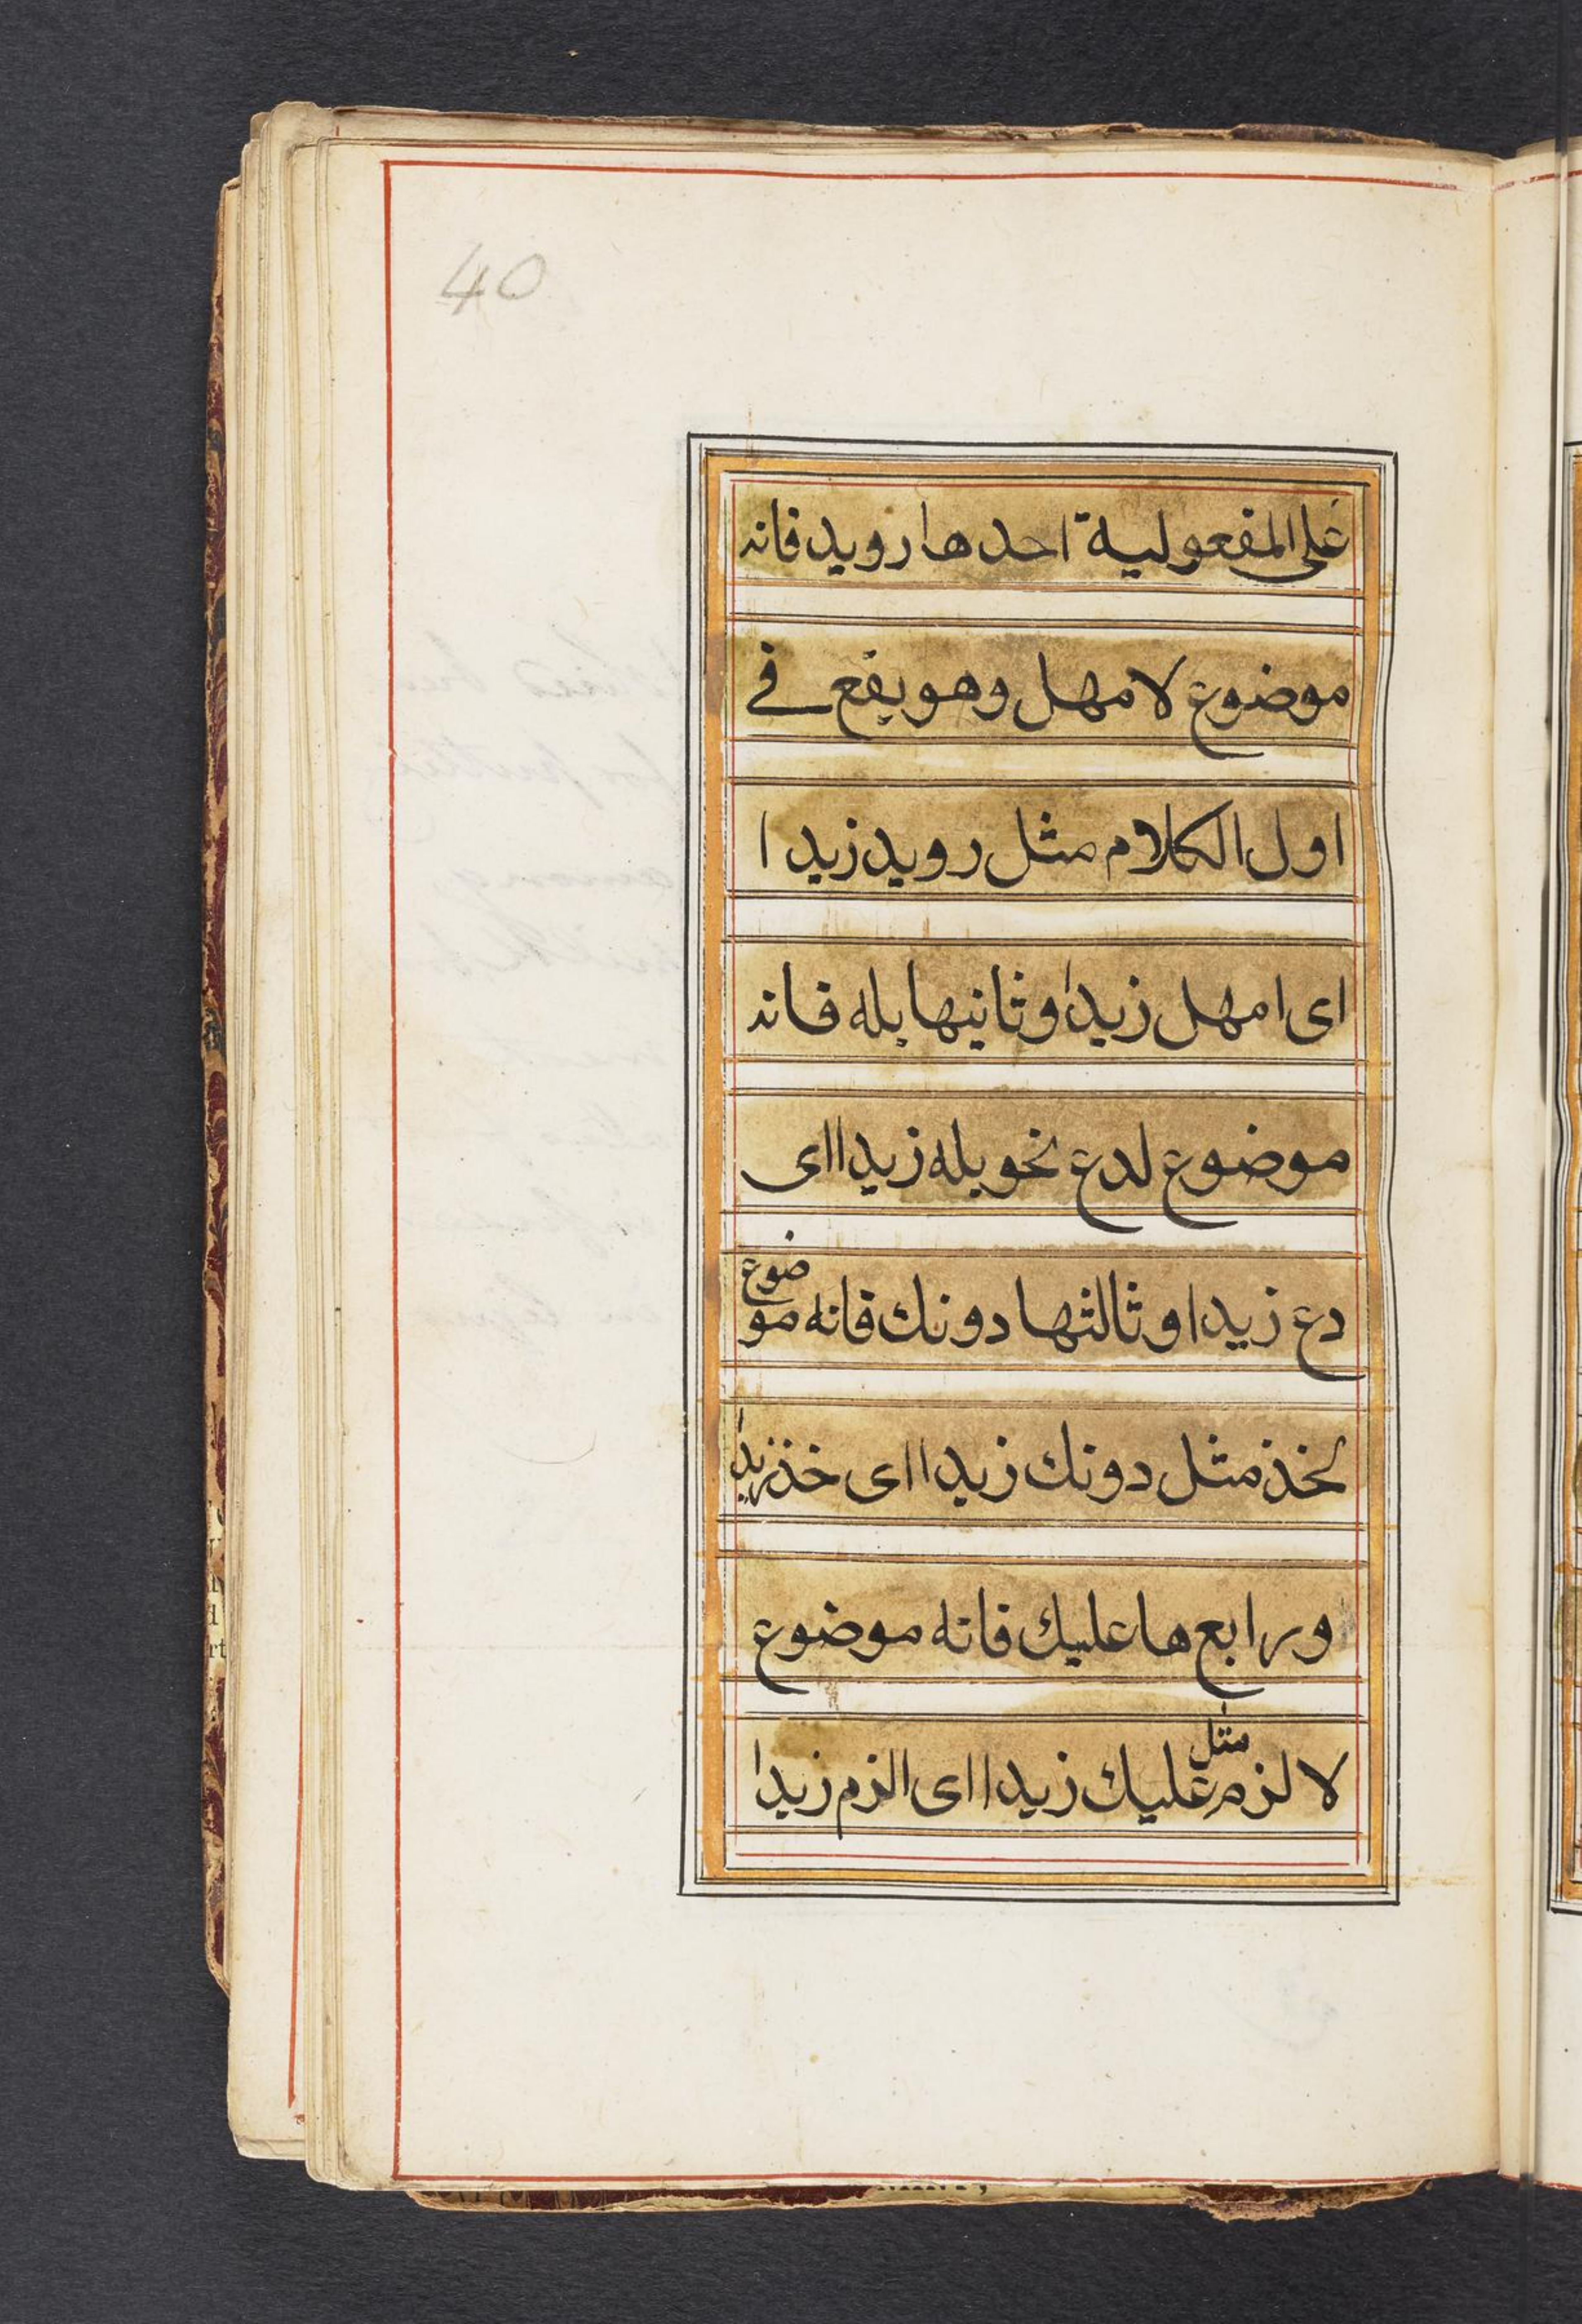 40
على المفعولية احدها رويد فانه
موضوع لامهل وهو يقع في
اول الكلام مثل رويد زيد ا
اى امهل زيدا وثانيها بله فانه
موضوع لدع نحو بله زيدا اى
دع زيدا وثالثها دونك فانه موضوع
لخذ مثل دونك زيدا اى خذ زيدا
ورابع ها عليك فانه موضوع
لا لزم مثل عليك زيدا اى الزم زيدا